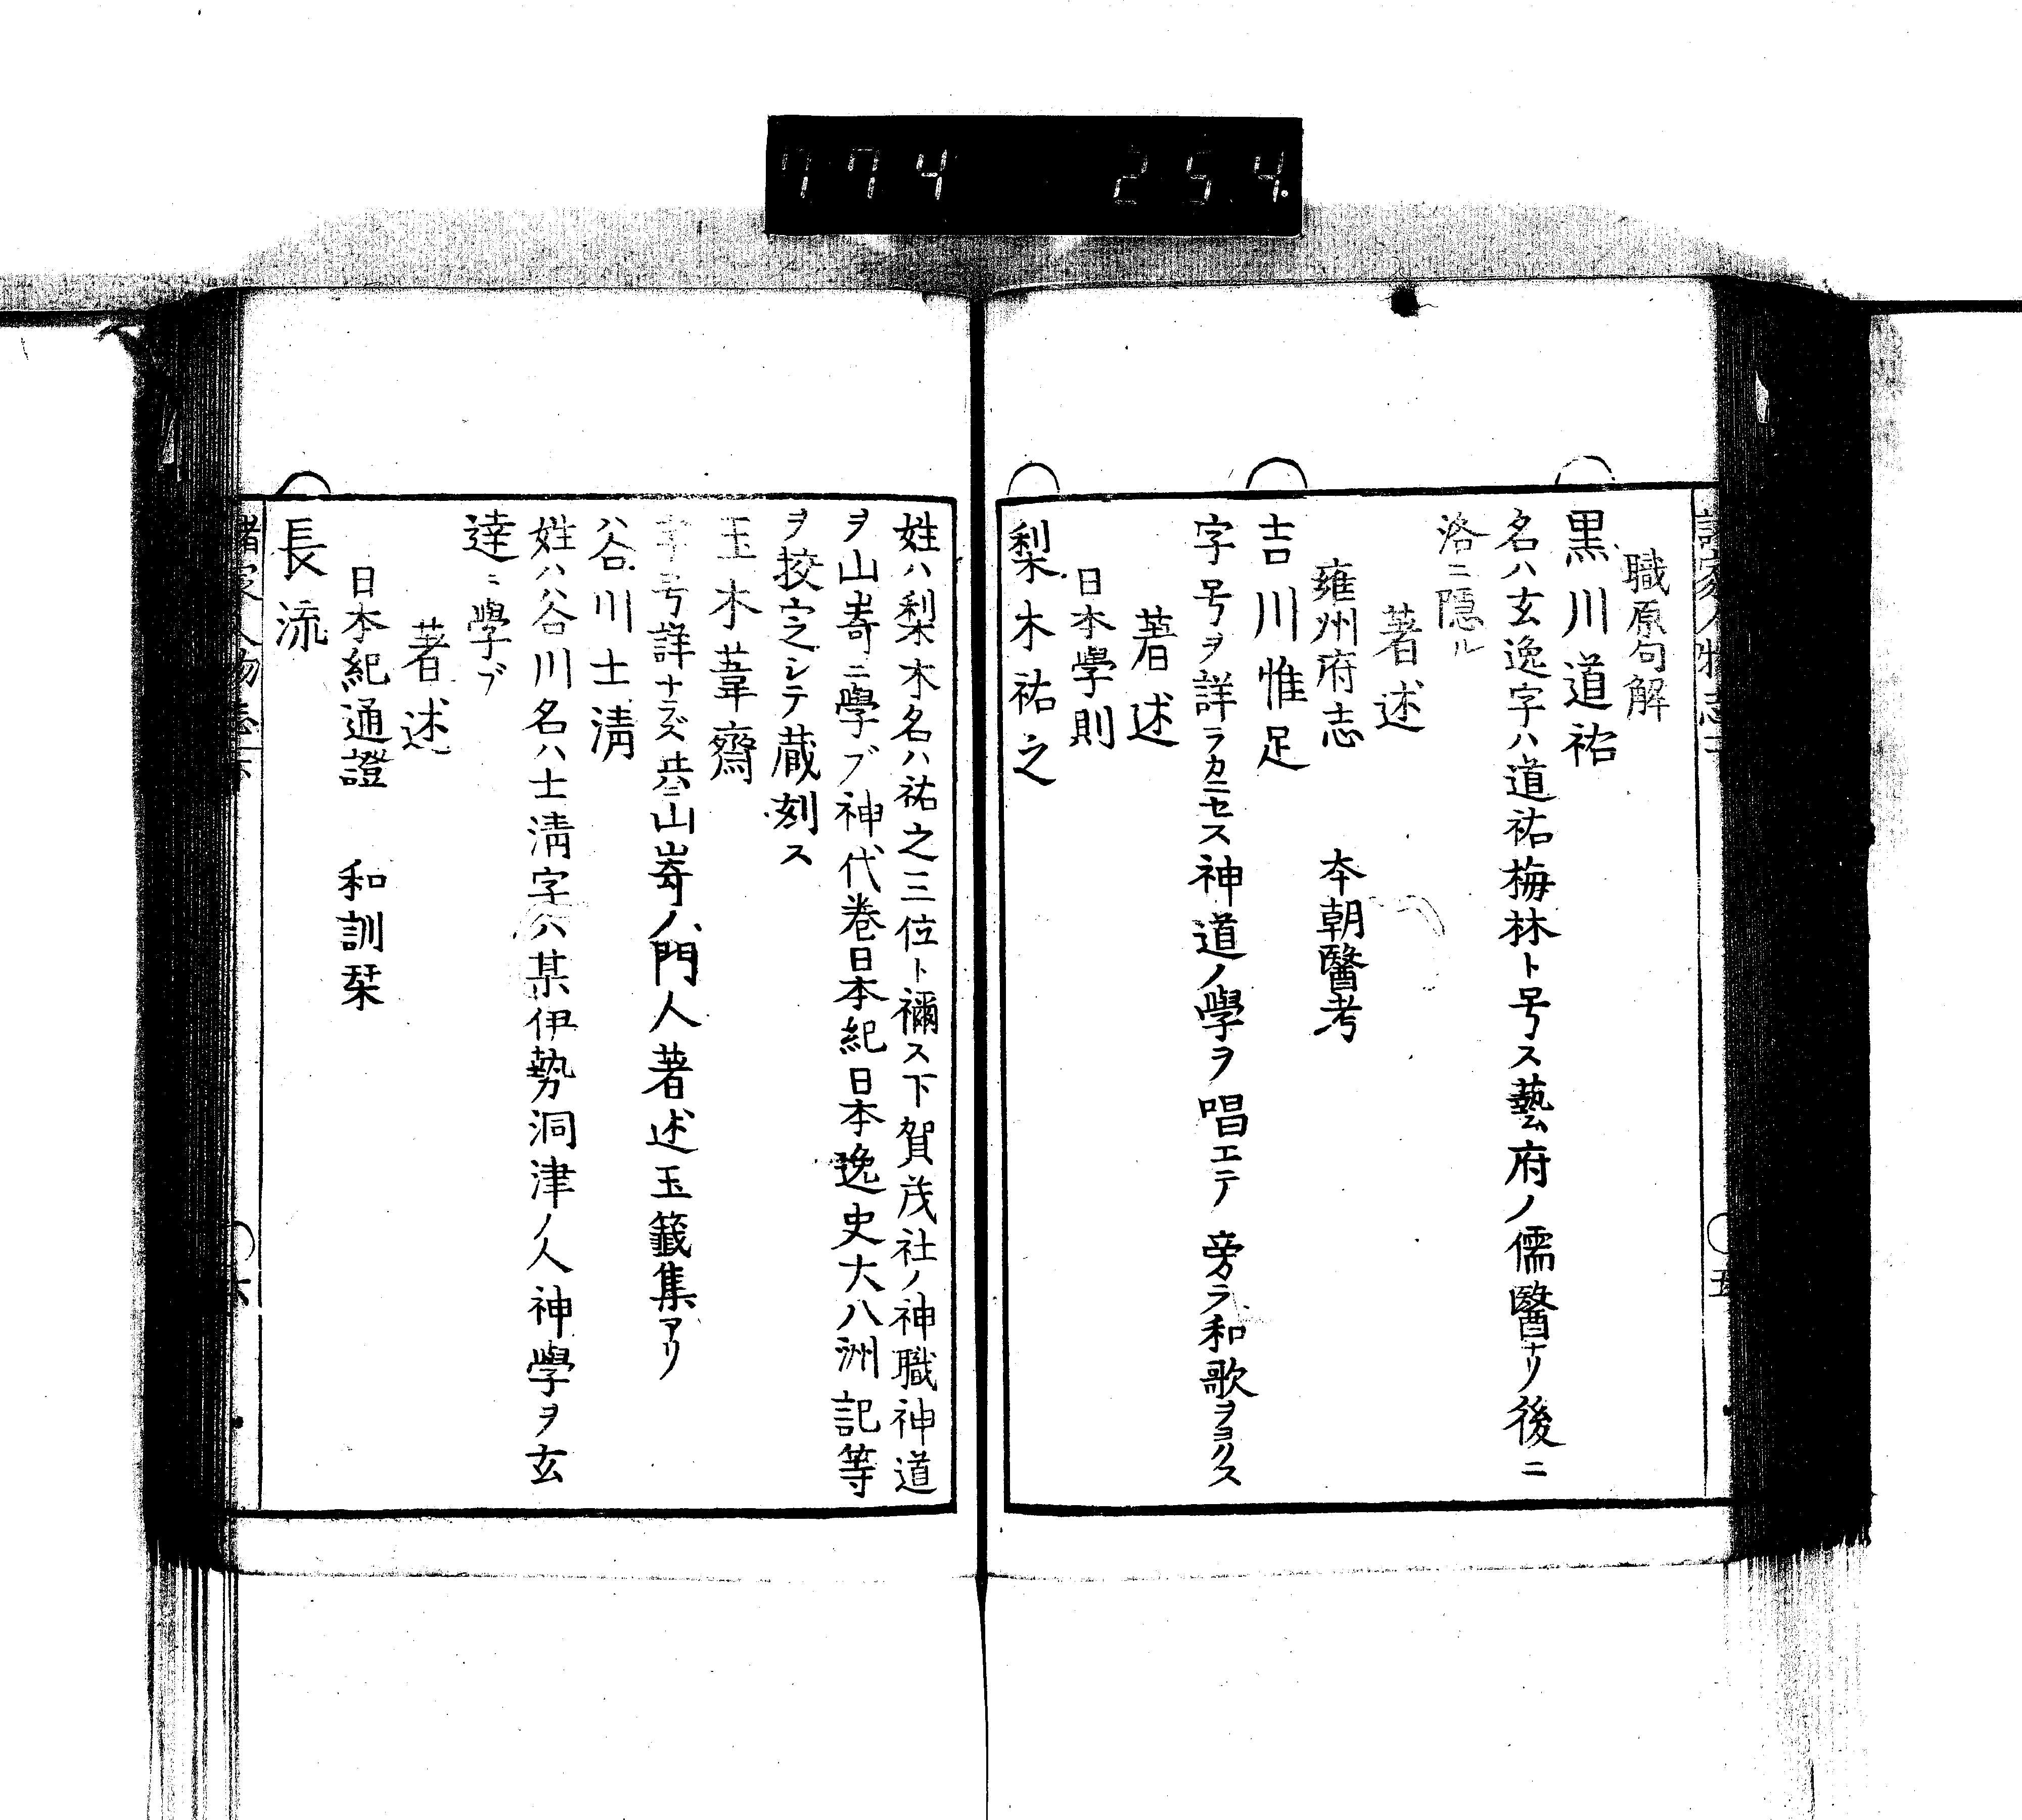 774 254
職原句解
黒川道祐
名ハ玄逸字ハ道祐梅林ト号ス藝府ノ儒醫ナリ後ニ
洛ニ隠ル
著述
雍州府志 本朝醫考
吉川惟足
字号ヲ詳ラカニセス神道ノ學ヲ唱エテ旁ラ和歌ヲヨクス
著述
日本學則
梨木祐之
姓ハ梨木名ハ祐之三位ト禰ス下賀茂社ノ神職神道
ヲ山嵜ニ學ブ神代巻日本紀日本逸史大八洲記等
ヲ挍定シテ蔵刻ス
玉木葦齋
字号詳ナラズ共ニ山嵜ノ門人著述玉籤集アリ
谷川士淸
姓ハ谷川名ハ士淸字ハ某伊勢洞津ノ人神學ヲ玄
達ニ學ブ
著述
日本紀通證 和訓栞
長流
六